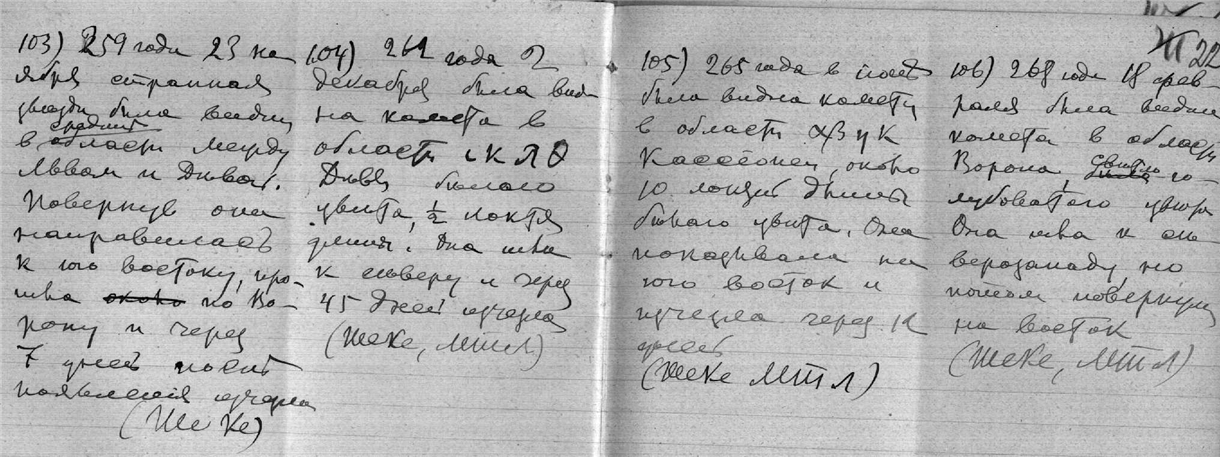 103) 259 года 23 но
ября странная
звезда была видна
средних
в области между
Львом и Девой.
Повернув она
направилась
к юго востоку, про-
шла около по Во-
рону и через
7 дней после
появления исчезла
(Ше Ке)
104) 261 года 2
декабря была вид
на комета в
области ι κ λ θ
Девы белого
цвета, ½ локтя
длины. Она шла
к северу и через
45 дней исчезла
(Шеке, МТЛ)
105) 265 года в
была видна комета
в области α β γ κ
Кассиопеи, около
10 длины
белого цвета. Она
показывала на
юго восток и
исчезла через 12
дней
(Шеке МТЛ)
22
106) 268 года 18 фев-
раля была видна
комета в области
Ворона, го-
лубоватого цвета
Она шла к се
верозападу, но
потом повернула
на восток
(Шеке, МТЛ)